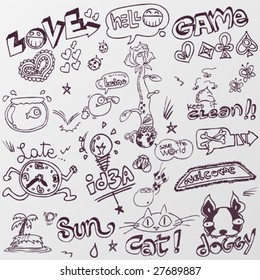 LOVE
HELLO
GAME
keep
clean!!
Late
id3A
we were
welcome
Sun
cat!
doggy
shutterstock.com · 27689887